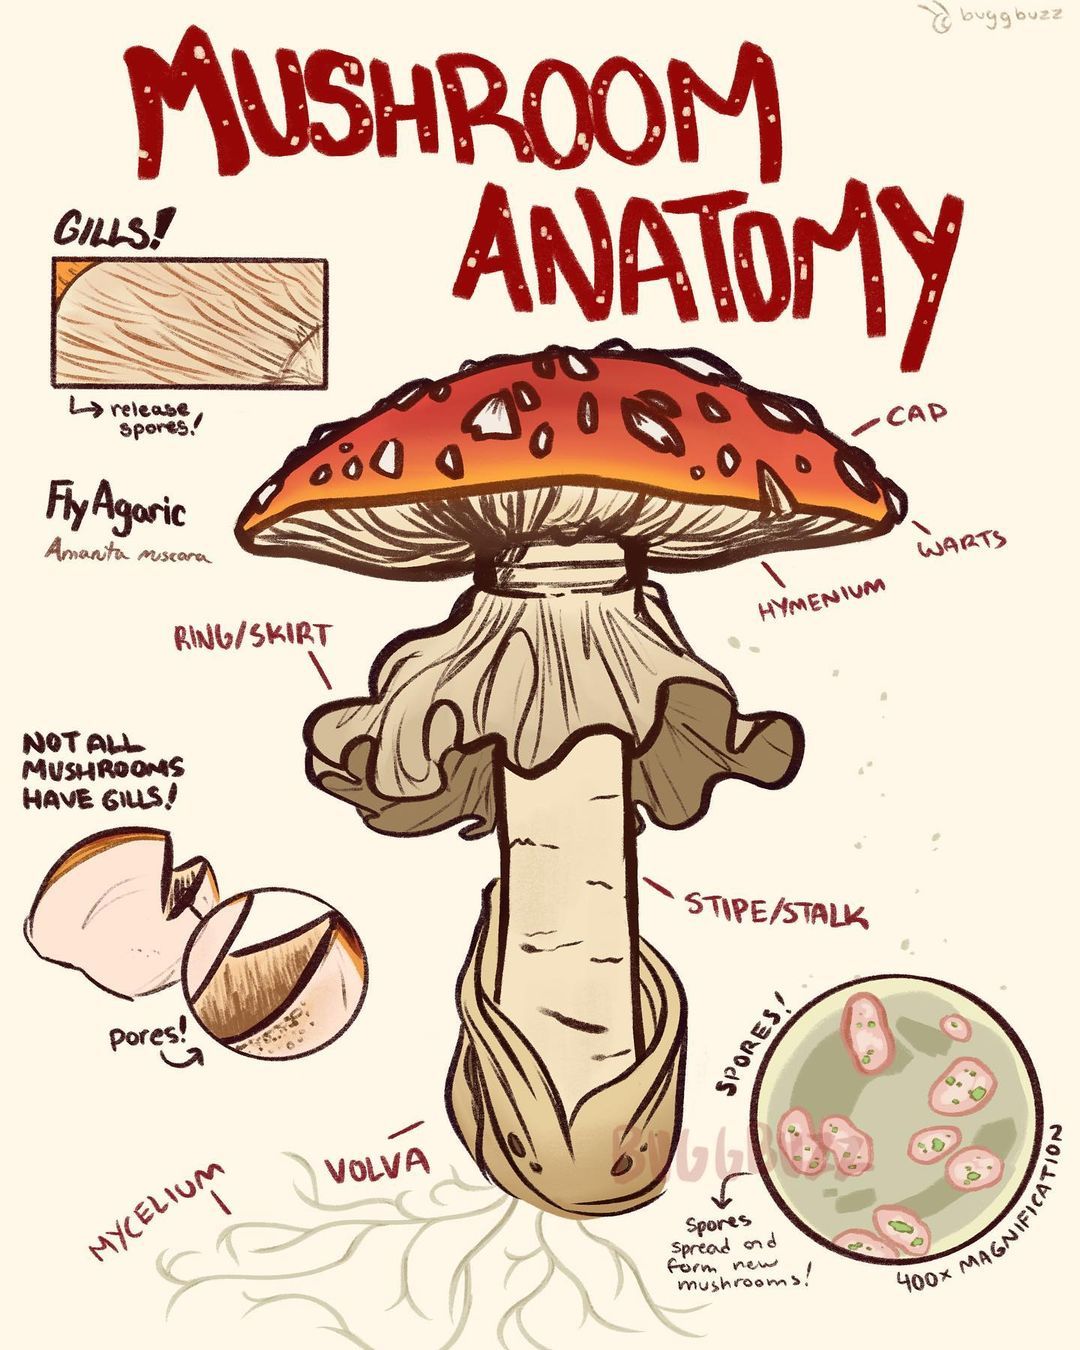 buggbuzz
MUSHROOM
ANATOMY
GILLS!
release
spores!
Fly Agaric
Amanita muscara
CAP
WARTS
HYMENIUM
RING/SKIRT
NOT ALL
MUSHROOMS
HAVE GILLS!
pores!
STIPE/STALK
SPORES!
400x MAGNIFICATION
BUGGBUZZ
VOLVA
MYCELIUM
Spores
spread and
form new
mushrooms!